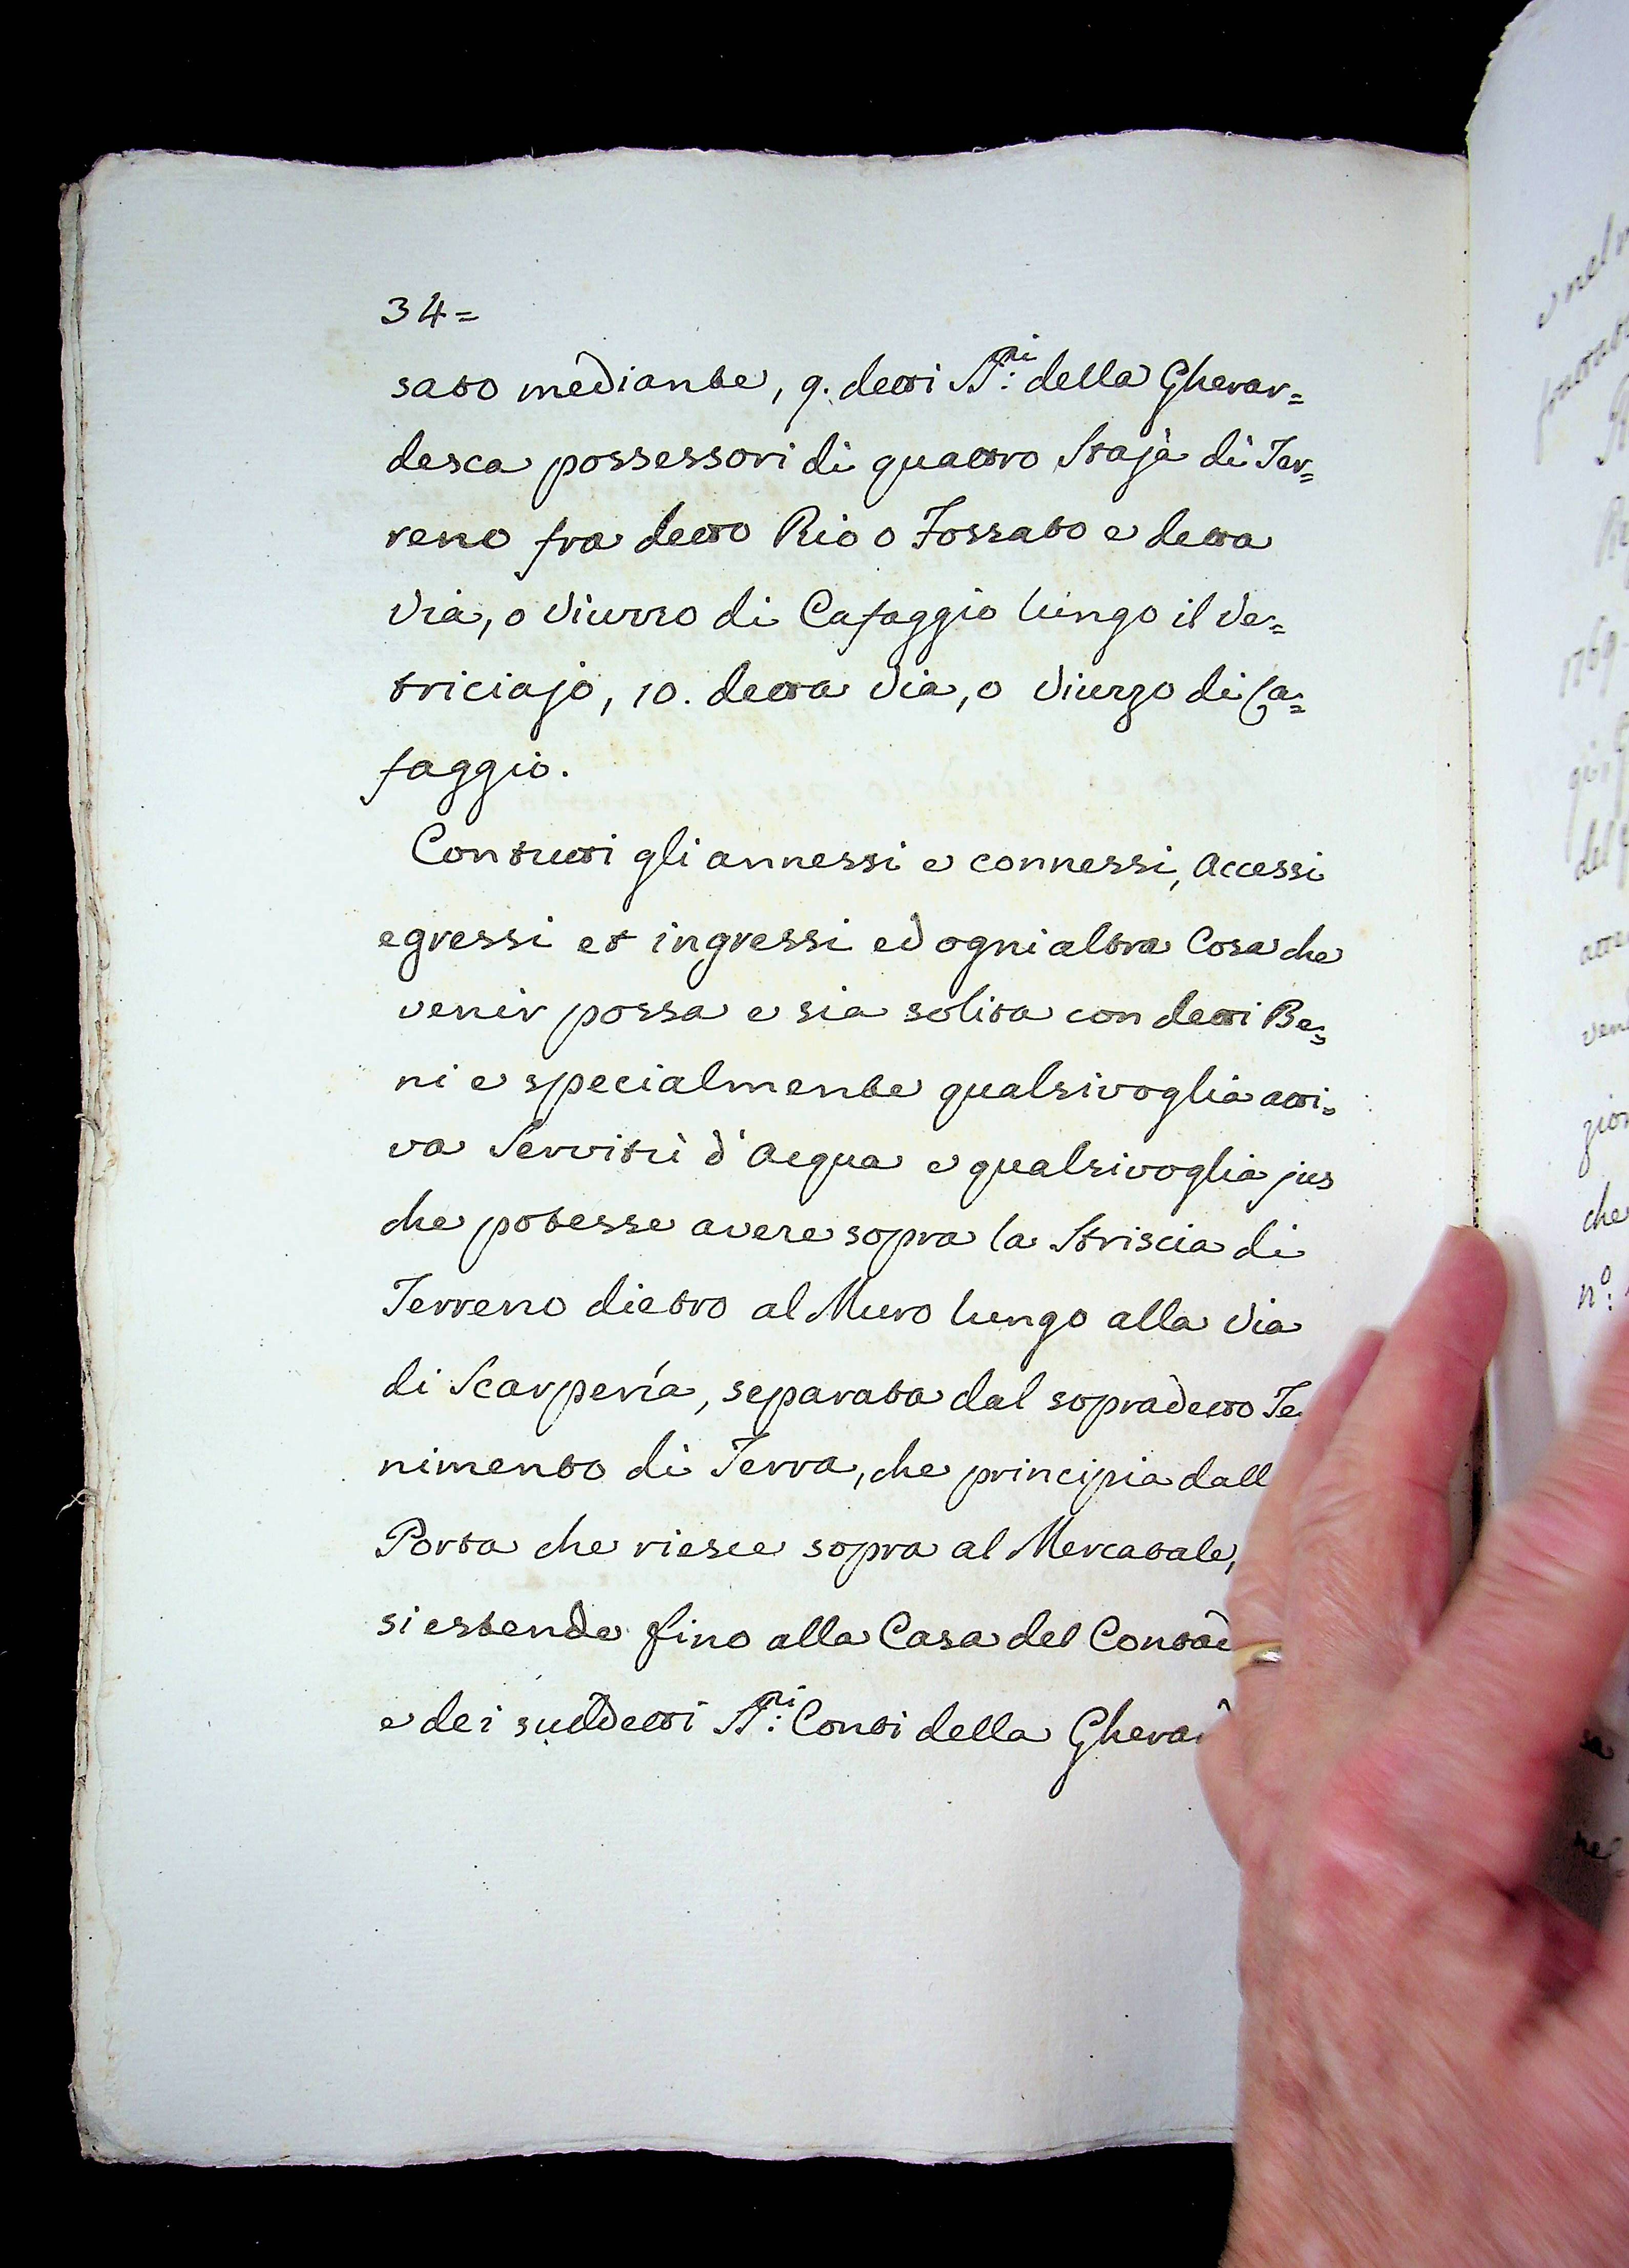 34=
sato mediante, 9. detti SS.ri della Gherar=
desca possessori di quattro Staja di Ter=
reno fra detto Rio o Fossato e detta
Via, o Viuzzo di Cafaggio lungo il Ve=
triciajo, 10. detta Via, o Viuzzo di Ca=
faggio.
Con tutti gli annessi e connessi, Accessi
egressi et ingressi ed ogni altra Cosa che
venir possa e sia solita con detti Be=
ni e specialmente qualsivoglia atti=
va Servitù d'Acqua e qualsivoglia jus
che potesse avere sopra la Striscia di
Terreno dietro al Muro lungo alla Via
di Scarpería, separata dal sopradetto Te
nimento di Terra, che principia dall
Porta che riesce sopra al Mercatale,
si estende fino alla Casa del Contad
e dei suddetti SS.ri Conti della Gherar
che
n.o
1769